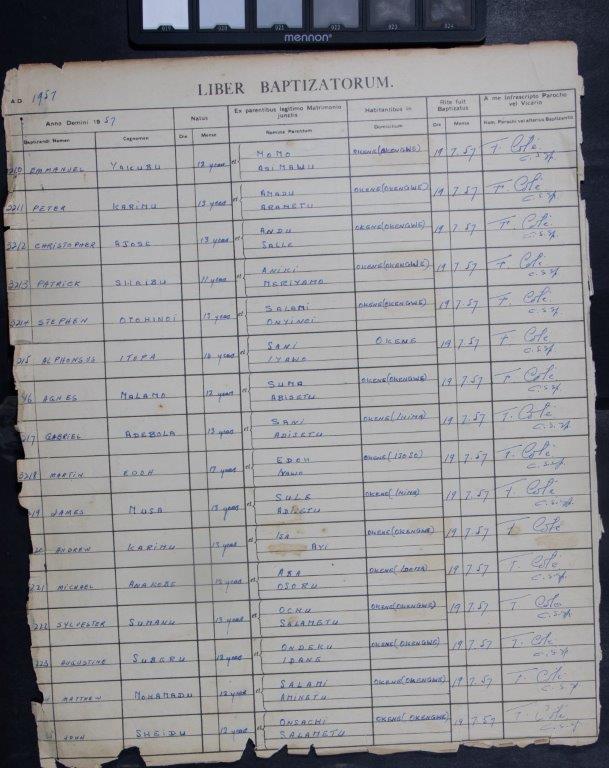 mennon
A.D. 1957
LIBER BAPTIZATORUM.
Anno Domini 1957 Natus Ex parentibus legitimo Matrimonio junctis Habitantibus in Rite fuit Baptizatus A me infrascripto Parocho vel Vicario
Baptizandi Nomen Cognomen Die Mense Nomina Parentum Domicilium Die Mense Nom. Parochi vel alterius Baptizantis
2210 EMMANUEL YAKUBU 12 years et MOMO ASIMAWU OKENE(OKENGWE) 19 7.57 F. Colé c.s.sp.
2211 PETER KARIMU 13 years et AMADU ARAMETU OKENE(OKENGWE) 19 7.57 F. Colé c.s.sp.
2212 CHRISTOPHER AJOSE 13 years et ANDU SALLE OKENE(OKENGWE) 19 7.57 F. Colé c.s.sp.
2213 PATRICK SHAIBU 11 years et ANIKI MERIYAMO OKENE(OKENGWE) 19 7.57 F. Colé c.s.sp.
2214 STEPHEN OTOHINOI 13 years et SALAMI ONYINOI OKENE(OKENGWE) 19 7.57 F. Colé c.s.sp.
215 ALPHONSUS ITOPA years et SANI IYAWO OKENE 19 7.57 F. Colé c.s.sp.
16 AGNES MALAMO 12 years et SUMA ABISETU OKENE(OKENGWE) 19 7.57 F. Colé c.s.sp.
217 GABRIEL ADEBOLA 13 years et SANI ADISETU OKENE( 19 7.57 F. Colé c.s.sp.
2218 MARTIN EDOH years et EDOH OKENE( 19 7.57 F. Colé c.s.sp.
219 JAMES MUSA 13 years et SULE ADISETU OKENE( 19 7.57 F. Colé c.s.sp.
20 ANDREW KARIMU 13 years et ISA AYI OKENE(OKENGWE) 19 7.57 F. Colé
221 MICHAEL ANAKOBE 13 years et ABA OSORU OKENE( 19 7.57 F. Colé c.s.sp.
222 SYLVESTER SUMANU 13 years et OCHU SALAMETU OKENE(OKENGWE) 19 7.57 F. Colé c.s.sp.
223 AUGUSTINE SUBERU 12 years et ONDEKU IDANE OKENE(OKENGWE) 19 7.57 F. Colé c.s.sp.
MATTHEW MOHAMADU 12 years et SALAMI AMINETU OKENE(OKENGWE) 19 7.57 F. Colé c.s.sp.
JOHN SHEIDU 12 years et ONSACHI SALAMETU OKENE(OKENGWE) 19 7.57 F. Colé c.s.sp.